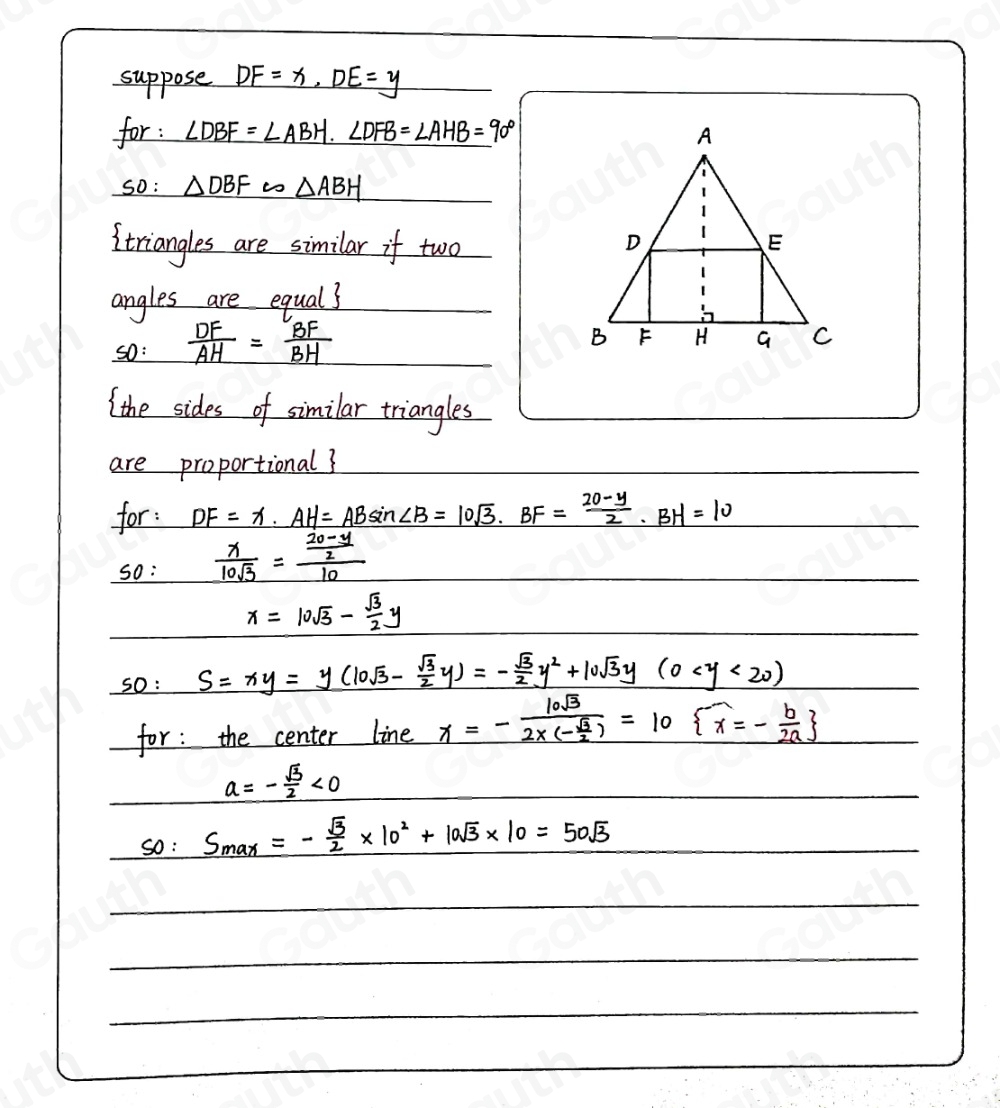 suppose DF = x, DE = y
for: ∠DBF = ∠ABH. ∠DFB = ∠AHB = 90°
so: △DBF ∽ △ABH
{triangles are similar if two
angles are equal}
so: DF/AH = BF/BH
{the sides of similar triangles
are proportional}
A
D E
B F H G C
for: DF = x. AH = AB sin∠B = 10√3. BF = (20-y)/2. BH = 10
so: x/(10√3) = ((20-y)/2)/10
x = 10√3 - (√3/2)y
so: S = xy = y(10√3 - (√3/2)y) = -(√3/2)y² + 10√3y (0 < y < 20)
for: the center line x = -(10√3)/(2×(-√3/2)) = 10 {x = -b/2a}
a = -√3/2 < 0
so: Smax = -√3/2 × 10² + 10√3 × 10 = 50√3
Gauth